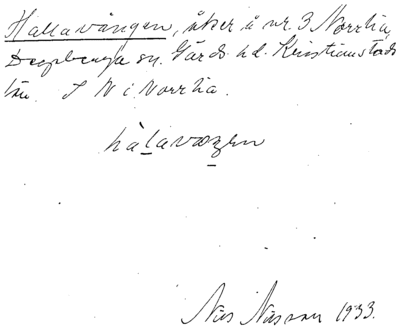 Hallavången, åker å nr. 3 Norrlia,
Degeberga sn. Gärds hd. Kristianstads
län. I N i Norrlia.
hàlavaŋen
Nils Nilsson 1933.